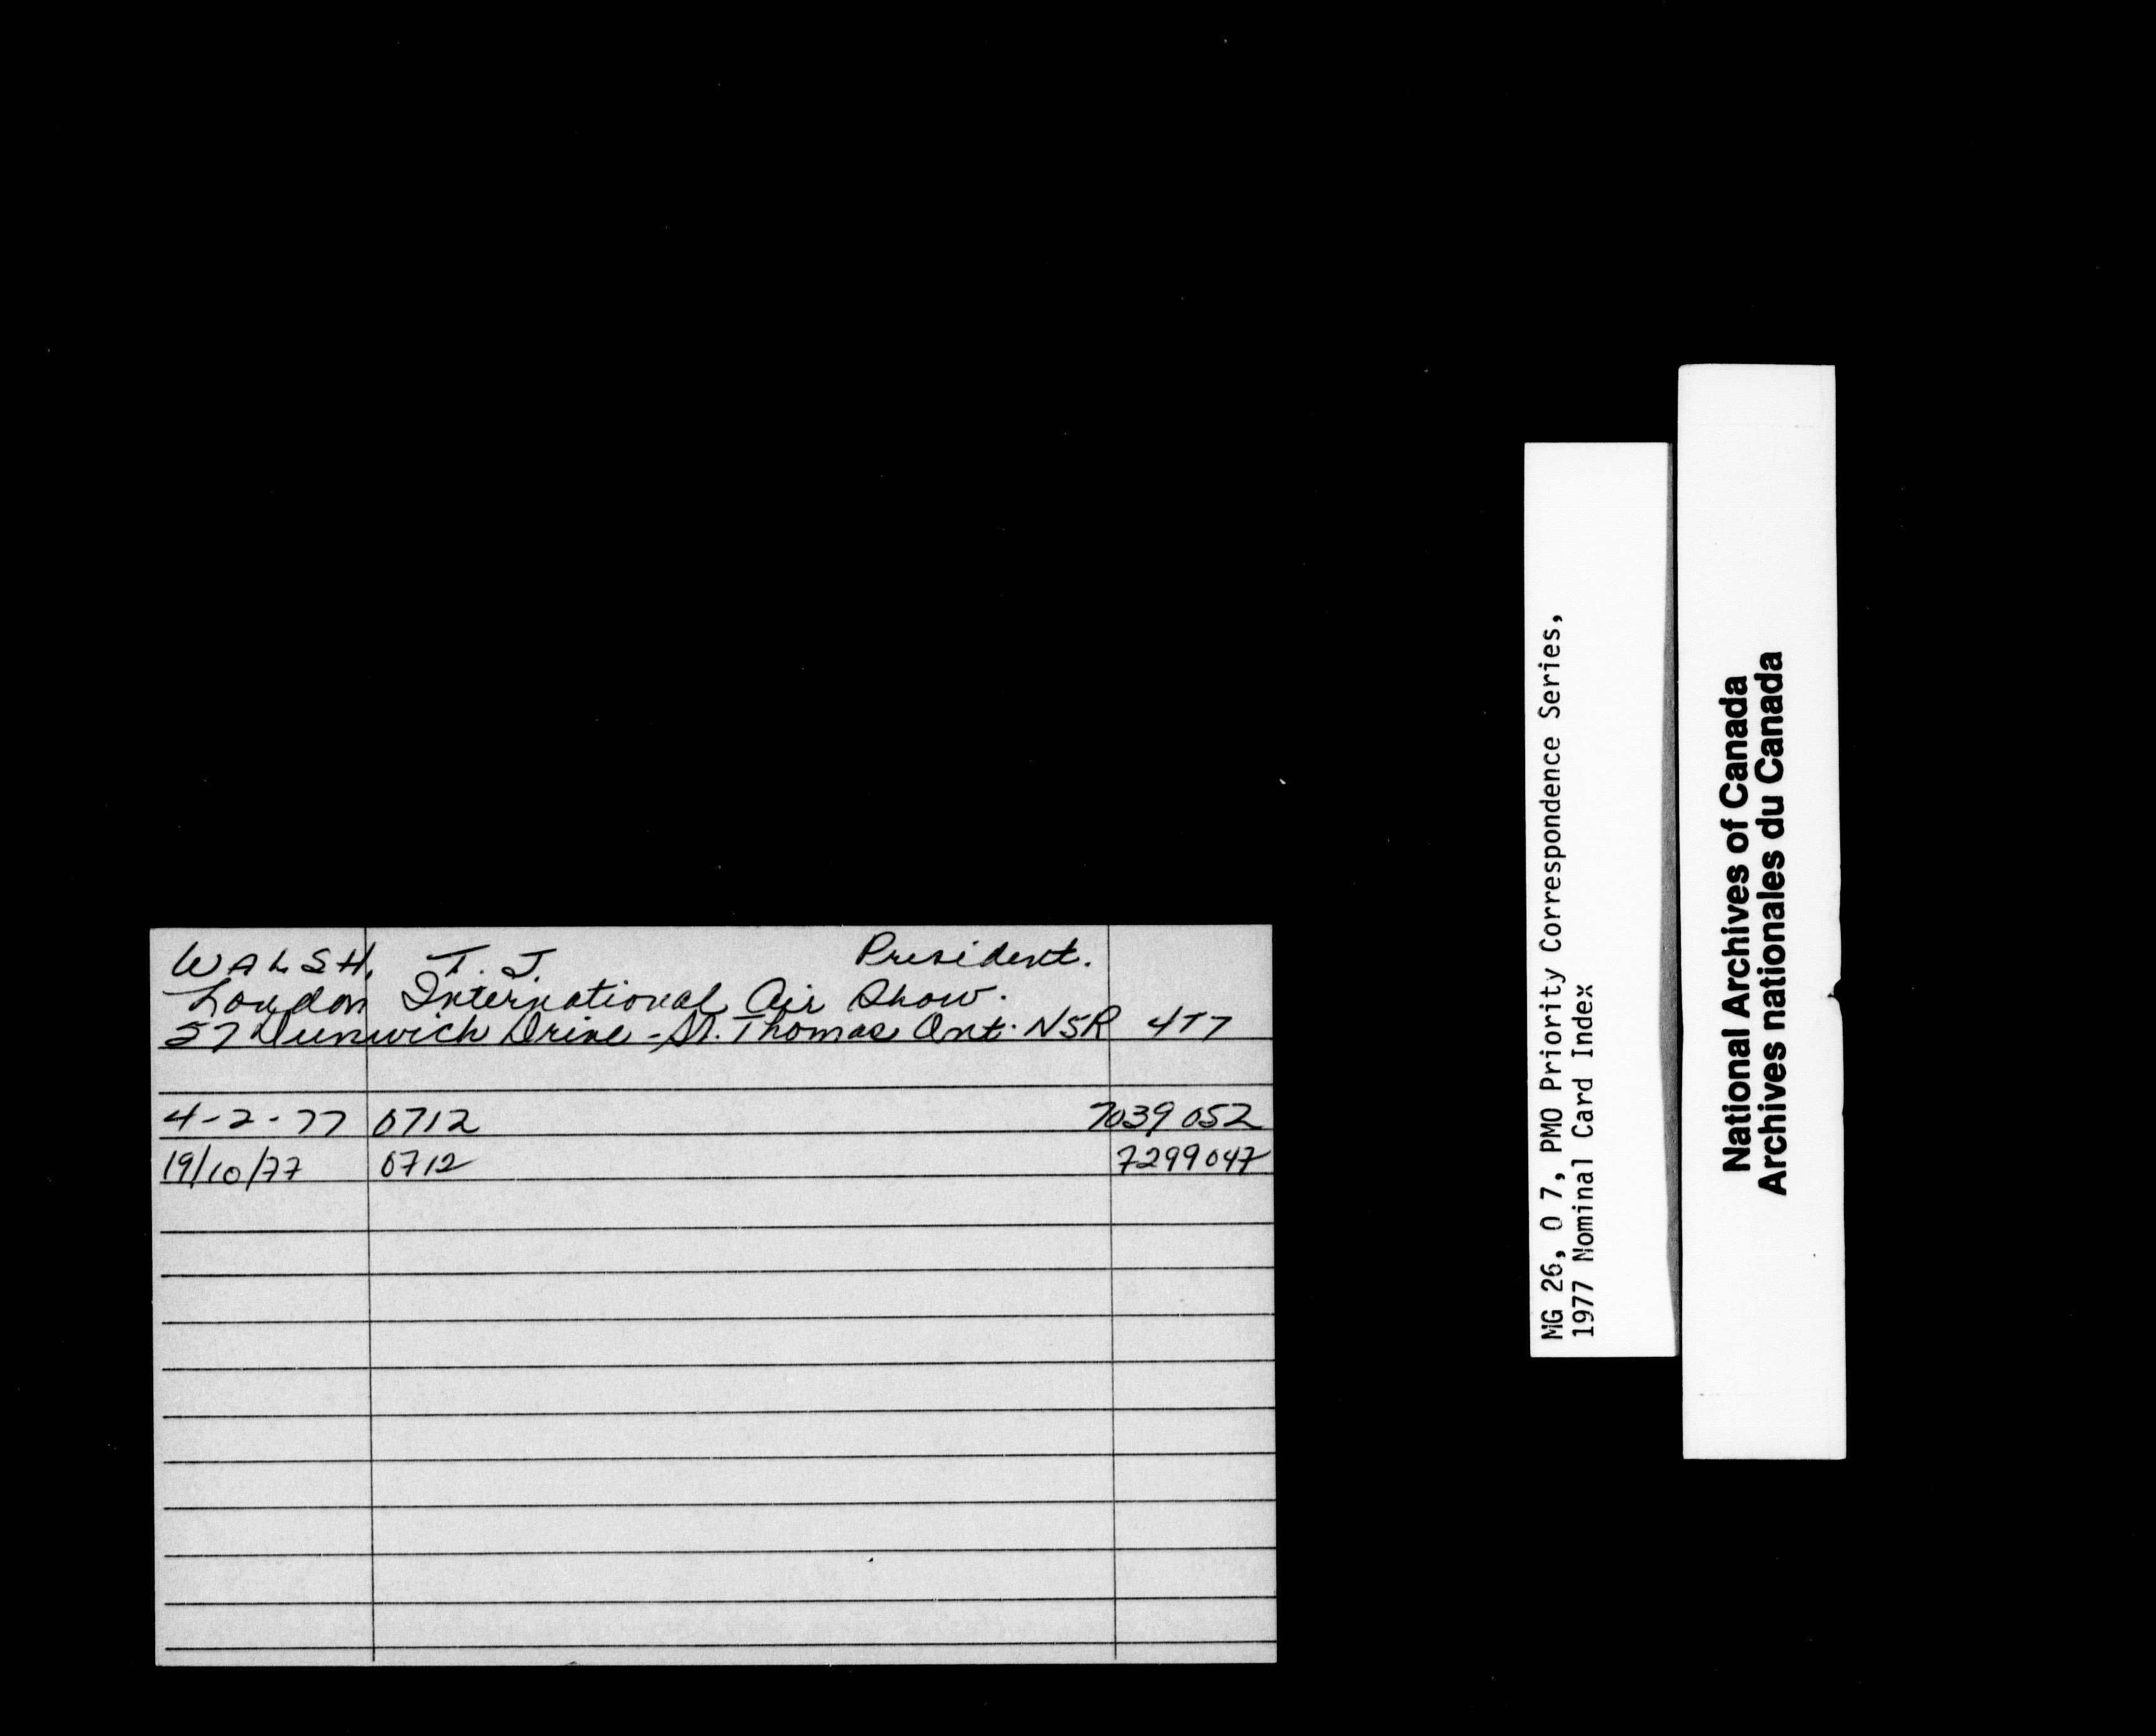 WALSH, T. J. President.
London International Air Show.
57 Dunwich Drive - St. Thomas Ont. N5R 4T7
4-2-77 0712 7039052
19/10/77 0712 7299047
MG 26, O 7, PMO Priority Correspondence Series,
1977 Nominal Card Index
National Archives of Canada
Archives nationales du Canada